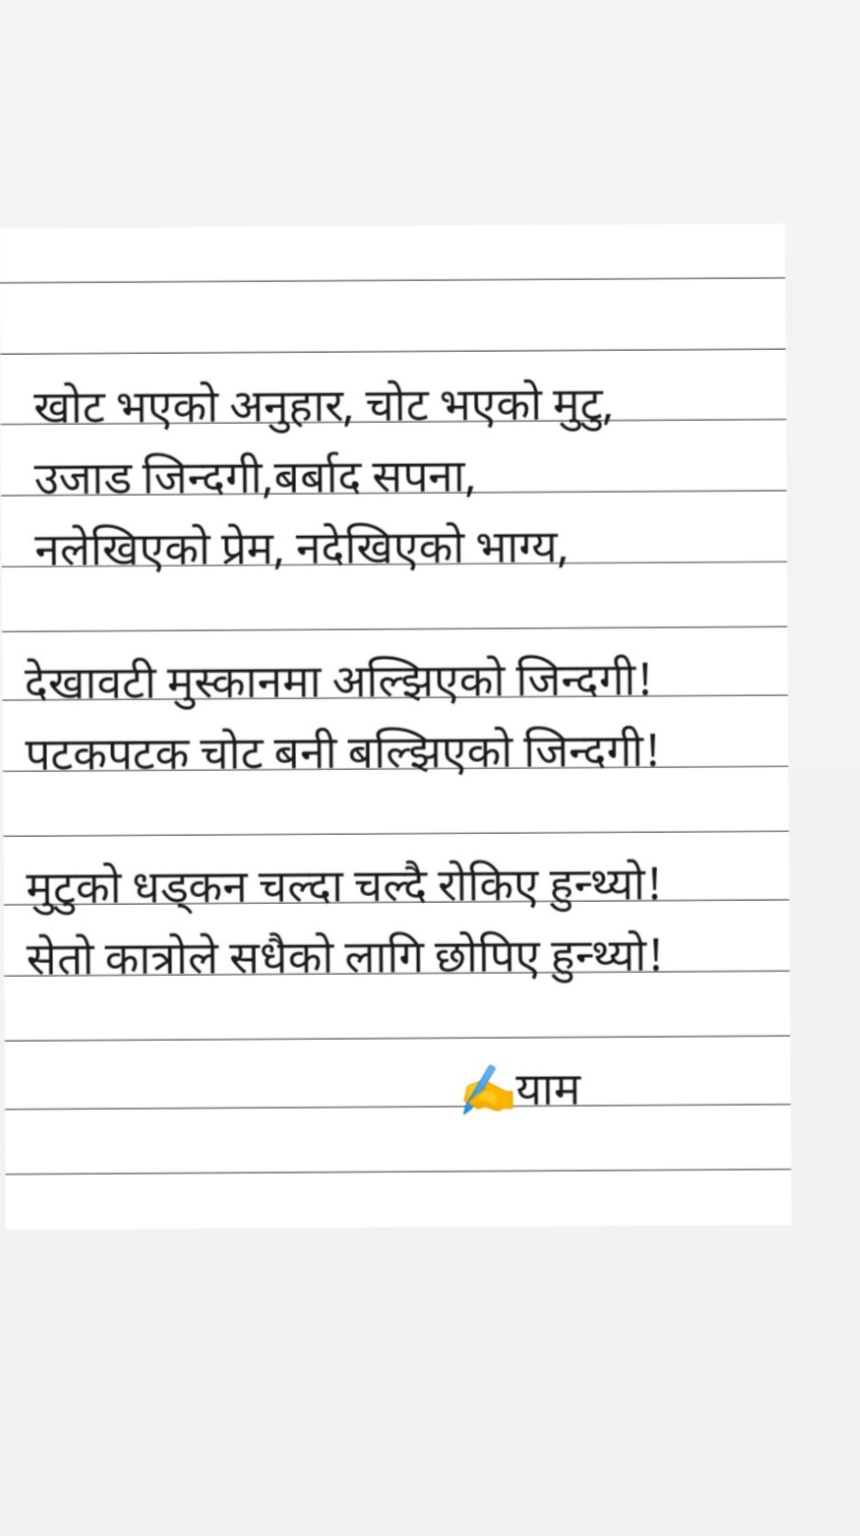 खोट भएको अनुहार, चोट भएको मुटु,
उजाड जिन्दगी,बर्बाद सपना,
नलेखिएको प्रेम, नदेखिएको भाग्य,
देखावटी मुस्कानमा अल्झिएको जिन्दगी!
पटकपटक चोट बनी बल्झिएको जिन्दगी!
मुटुको धड्कन चल्दा चल्दै रोकिए हुन्थ्यो!
सेतो कात्रोले सधैको लागि छोपिए हुन्थ्यो!
✍️याम